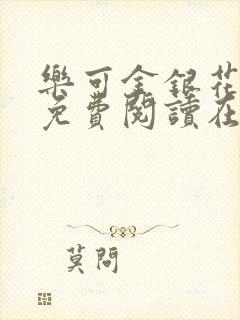 樂可金銀花
免費閱讀在
莫問